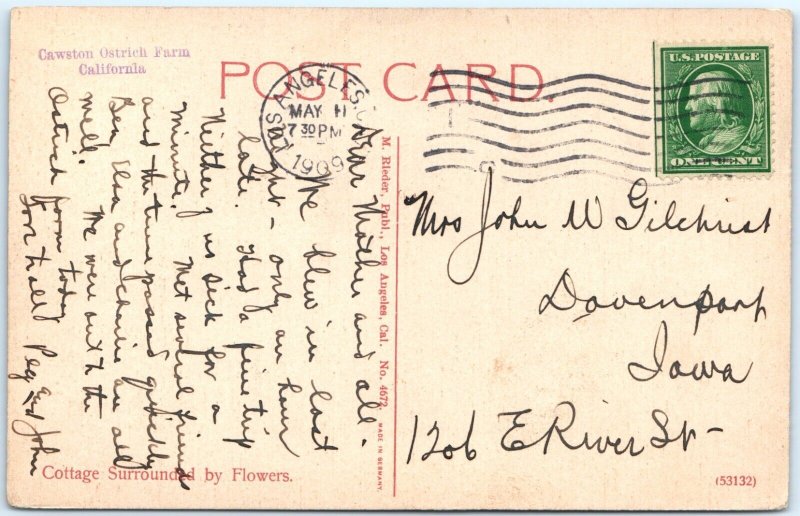 Cawston Ostrich Farm
California
POST CARD.
LOS ANGELES, CAL.
MAY 11
7 30 PM
1909
U.S. POSTAGE
ONE CENT
Dear Mother and all.
We blew in last
night - only an hour
late. Had a fine trip
Neither of us sick for a
minute. Met several friends
and the time passed quickly
Geo, Elsa and Charlie are all
well. We were out to the
Ostrich farm today
Love to all Peg and John
M. Rieder, Publ., Los Angeles, Cal. No. 4672.
MADE IN GERMANY.
Mrs John W Gilchrist
Davenport
Iowa
1206 E River St-
Cottage Surrounded by Flowers.
(53132)